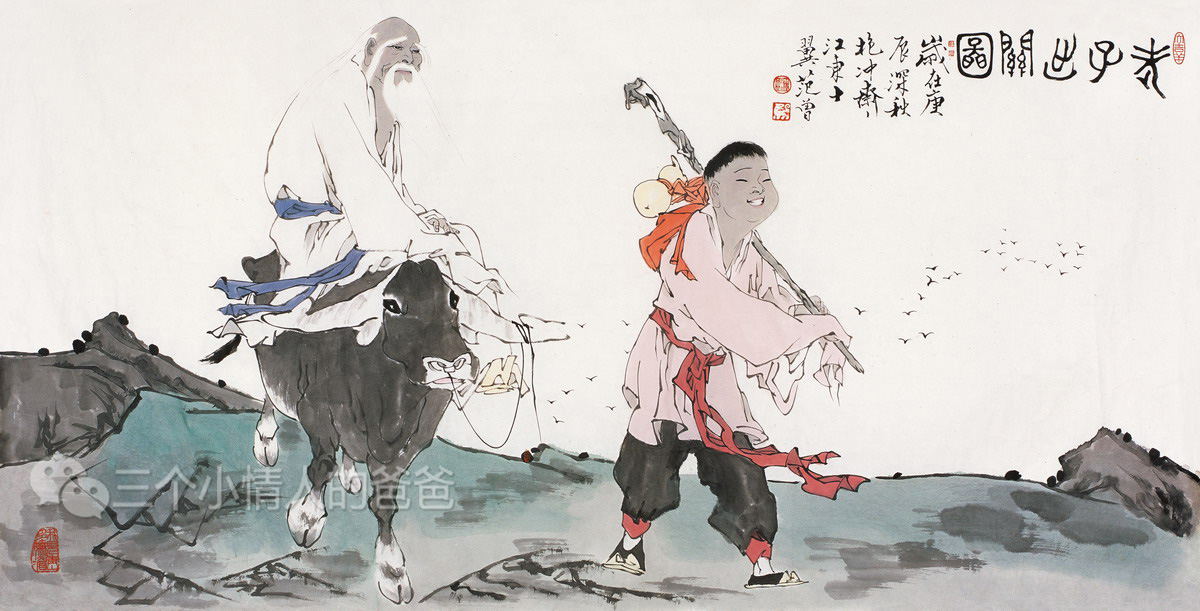 老子出關圖
歲在庚
辰深秋
抱冲齋
江東十
翼范曾
三个小情人的爸爸